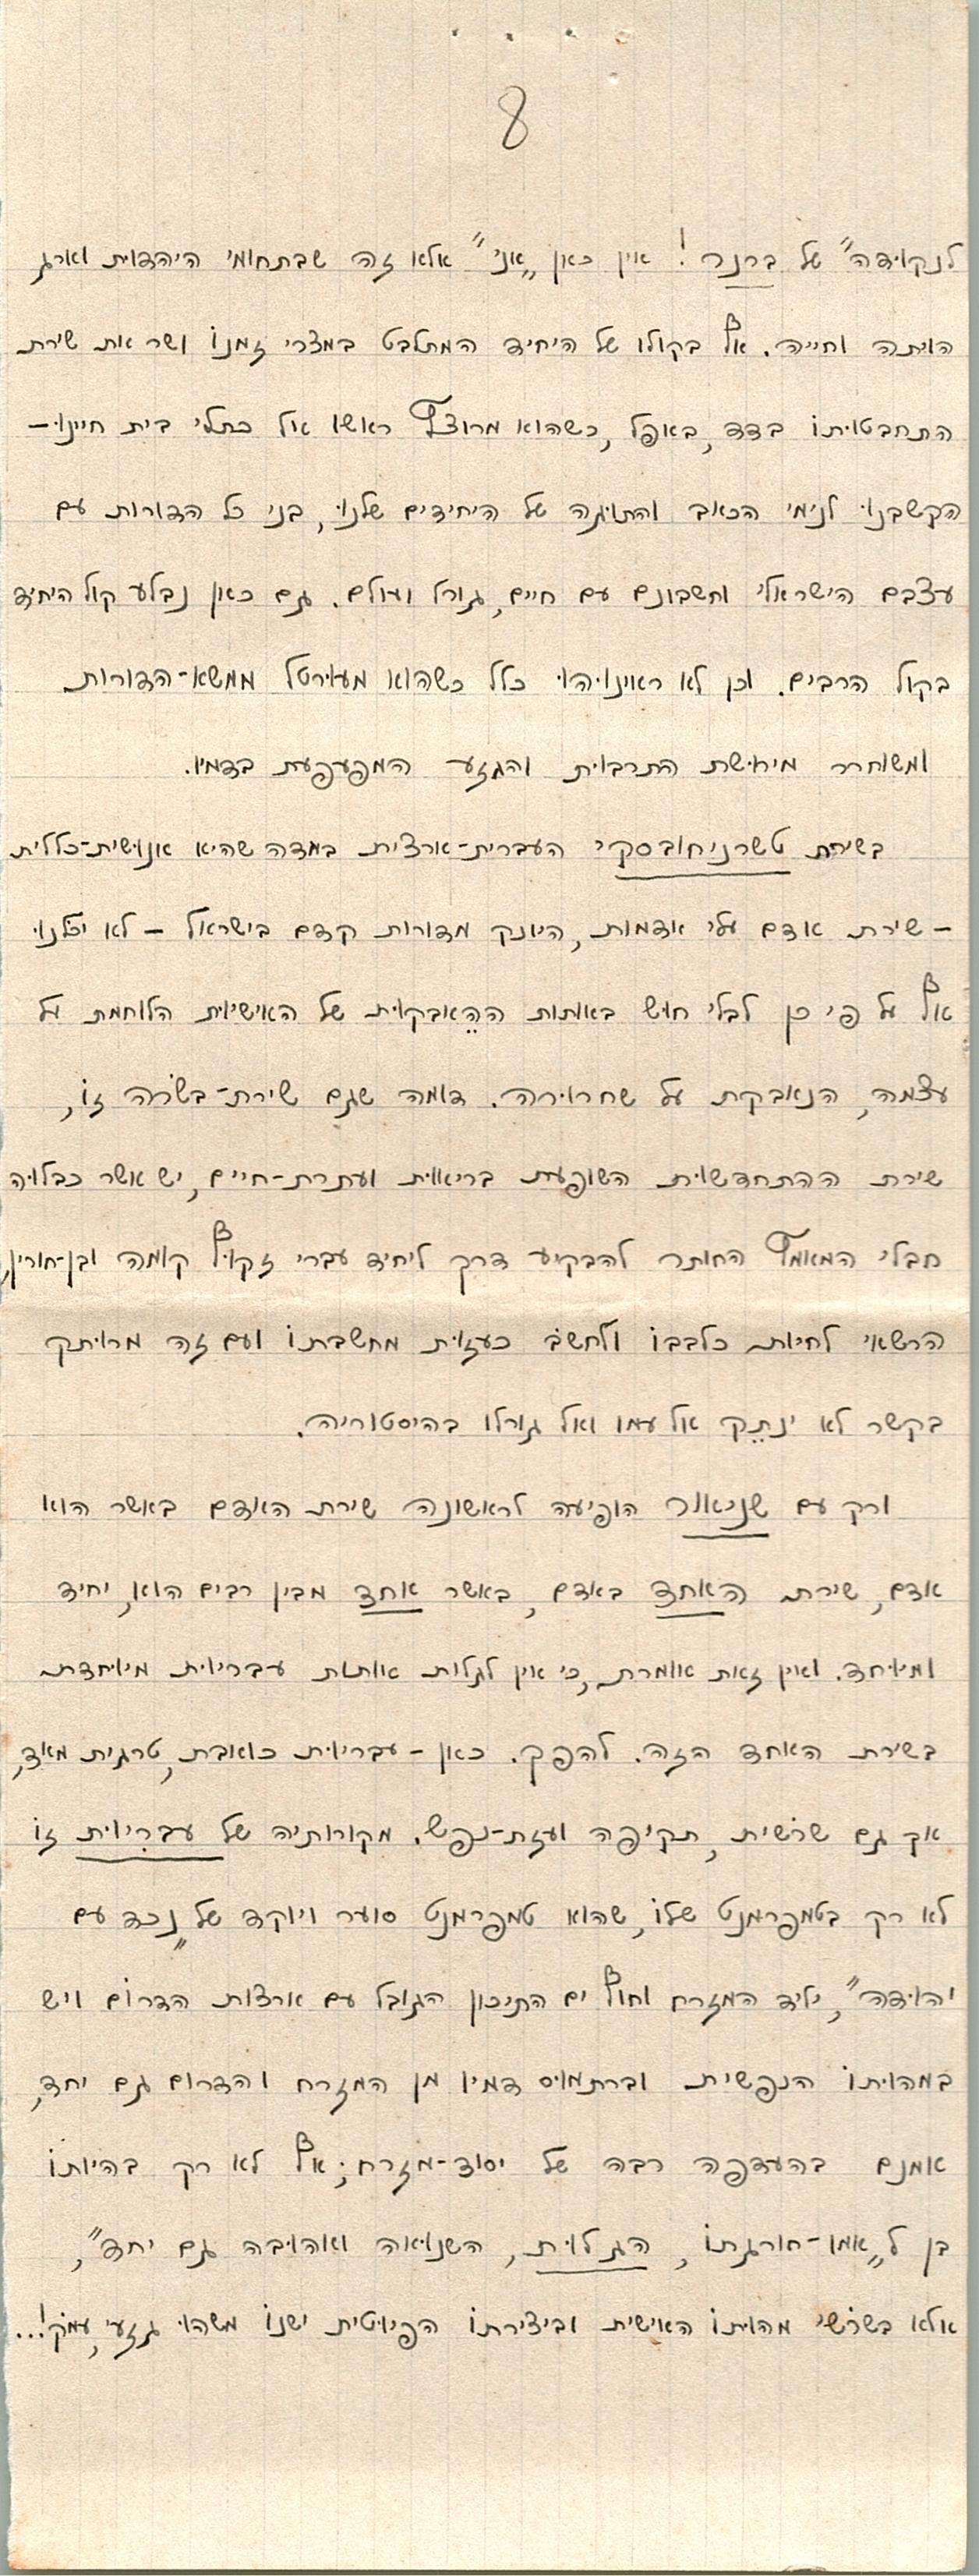 8
לנקודה" של ברנר! אין כאן „אני" אלא זה שבתחומי היהדות וארג
הויתה וחייה. אף בקולו של היחיד המתלבט במצרי זמנו ושר את שירת
התחבטותו בדד, באפל, כשהוא מרוצץ ראשו אל כתלי בית חיינו –
הקשבנו לנימי הכאב והתוגה של היחידים שלנו, בני כל הדורות עם
עצבם הישראלי וחשבונם עם חיים, גורל ועולם. גם כאן נבלע קול היחיד
בקול הרבים. וכן לא ראינוהו כלל כשהוא מעורטל ממשא-הדורות
ומשוחרר מירושת התרבות והגזע המפעפעת בדמיו.
בשירת טשרניחובסקי העברית-ארצית במדה שהיא אנושית-כללית
– שירת אדם עלי אדמות, היונק מדורות קדם בישראל – לא יכֹלנו
אף על פי כן לבלי חוש באותות ההֵאבקות של האישיות הלוחמת על
עצמה, הנאבקת על שחרורה. דומה שגם שירת-בשׂרה זו,
שירת ההתחדשות השופעת בריאות ועתרת-חיים, יש אשר כבלוה
חבלי המאמץ החותר להבקיע דרך ליחיד עברי זקוף קומה ובן-חורין,
הרשאי לחיות כלבבו ולחשוב כעזות מחשבתו ועם זה מרותק
בקשר לא ינתֵק אל עמו ואל גורלו בהיסטוריה.
ורק עם שניאור הופיעה לראשונה שירת האדם באשר הוא
אדם, שירת האחד באדם, באשר אחד מבין רבים הוא, יחיד
ומיוחד. ואין זאת אומרת, כי אין לגלות אותות עבריות מיוחדת
בשירת האחד הזה. להפך. כאן – עבריות כואבת, טרגית מאד,
אך גם שרשית, תקיפה ועזת-נפש. מקורותיה של עבריות זו
לא רק בטמפרמנט שלו, שהוא טמפרמנט סוער ויוקד של „נכד עם
יהודה", יליד המזרח וחוף ים התיכון הגובל עם ארצות הדרום ויש
במהותו הנפשית וברתמוס דמיו מן המזרח והדרום גם יחד,
אמנם בהעדפה רבה של יסוד-מזרח; אף לא רק בהיותו
בן ל„אמו-חורגתו, הגלות, השנואה ואהובה גם יחד",
אלא בשרשי מהותו האישית וביצירתו הפיוטית ישנו משהו גזעי, עמֹק!...